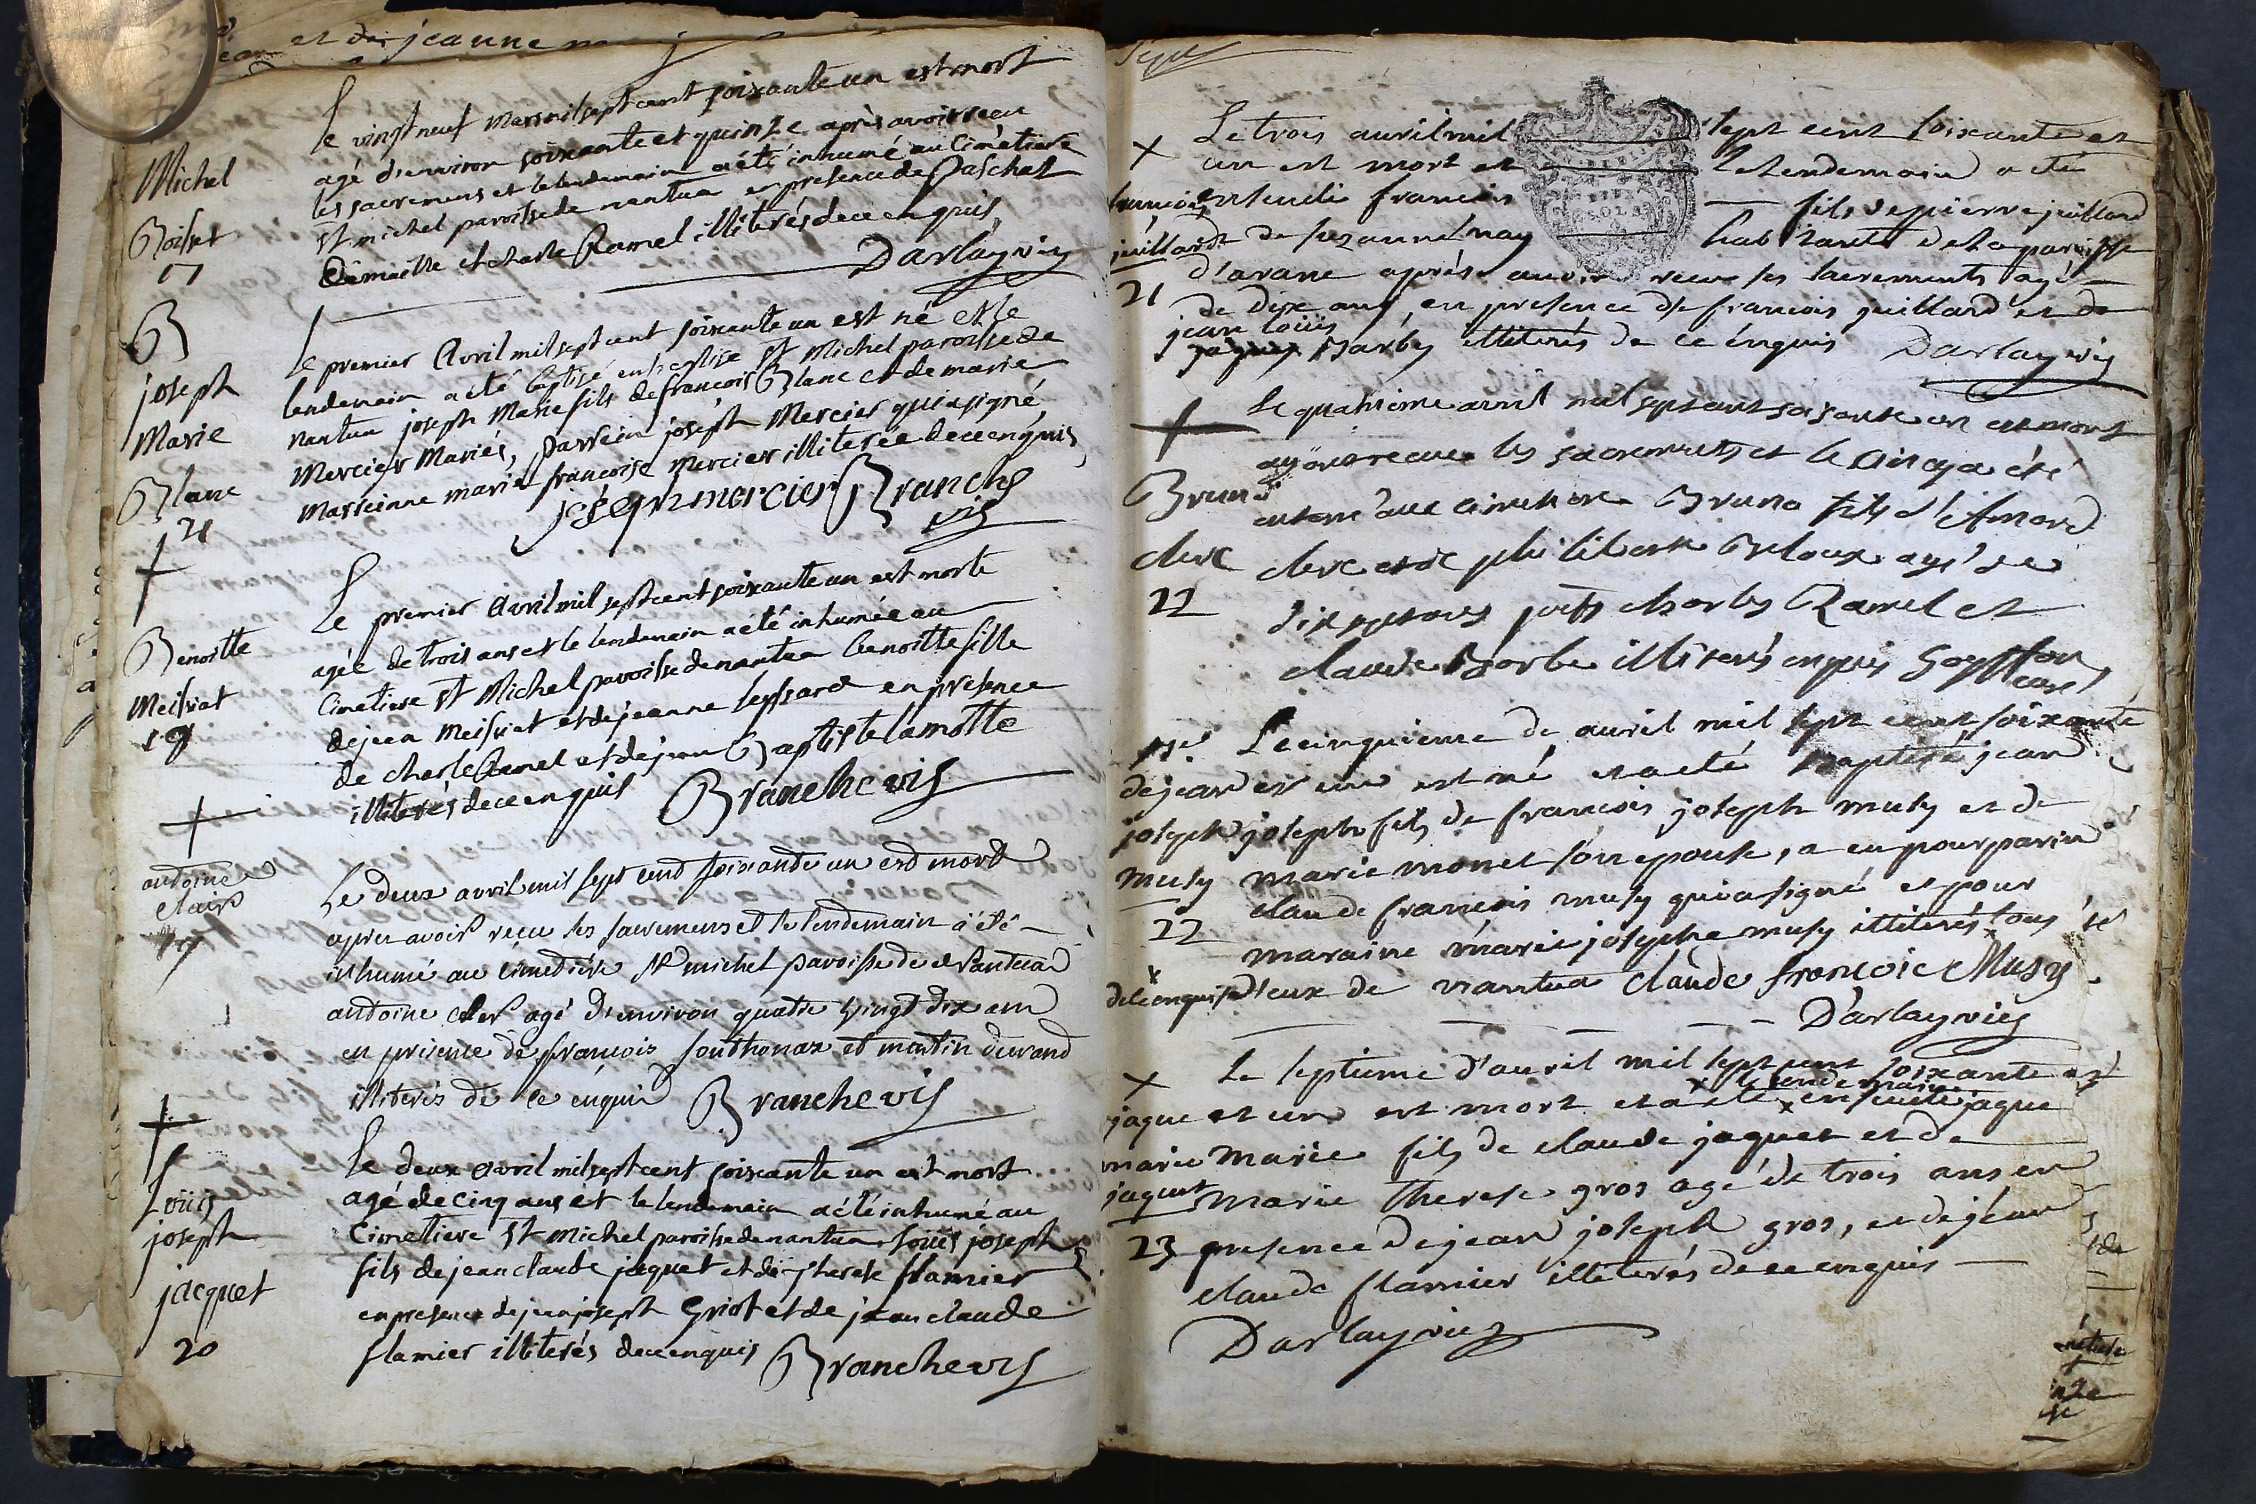 et de jeanne
Le vingt neuf mars mil sept cent soixante un est mort
agé d'environ soixante et quinze après avoir recu
les sacremens et le lendemain a été inhumé au Cimetiere
St michel paroisse de nantua en presence de Paschal
et charle Ramel illiterés de ce enquis
Darlay vic
Michel
Boisset
17
Le premier Avril mil sept cent soixante un est né et le
lendemain a été baptisé en l'eglise St Michel paroisse de
nantua joseph Marie fils de francois Blanc et de marie
Mercier Mariés, parrein joseph Mercier qui a signé
marreinne marie francoise mercier illiterée de ce enquis
joseph mercier Branche
vic
B
joseph
Marie
Blanc
21
Le premier Avril mil sept cent soixante un est morte
agée de trois ans et le lendemain a été inhumée au
Cimetiere St Michel paroisse de nantua benoitte fille
de jean Meissiat et de jeanne en presence
de charle Ramel et de jean Baptiste lamotte
illiterés de ce enquis Branche vic
Benoitte
Meissiat
Le deux avril mil sept cend soixande un est mort
apres avoir recu les sacremens et le lendemain a été
inhumé au cimediere St michel paroisse de Nantua
andoine cler agé d'environ quatre vingt dix ans
en presence de francois southonax et martin durand
illiterés de ce enquis Branche vic
andoine
clair
19
Le deux avril mil sept cent soixante un est mort
agé de cinq ans et le lendemain a été inhumé au
Cimetiere St michel paroisse de nantua louis joseph
fils de jean claude jaquet et de therese flamier
en presence de jean joseph Griot et de jean claude
flamier illiterés de ce enquis Branche vic
Louis
joseph
jacquet
20
Sept
Le trois avril mil sept cent soixante et
un est mort et le lendemain a été
enseveli francois fils de pierre juilland
et de suzanne nay habitants de la paroisse
d'arane après avoir recu les sacrements agé
de dix ans, en presence de francois juilland et de
jean louis
jaques Barbe illiterés de ce enquis Darlay vic
x
francois
juilland
21
Le quatrieme avril mil sept cent soisante un est mort
ayant recue les sacrements et le cinq a été
enterré au cimetiere Bruno fils d'Amord
clerc et de philiberte Beloux agé de
dix sept ans charles Ramel et
claude Barbe illiterés enquis
Bruno
clerc
22
Le cinquieme de avril mil sept cent soixante
et un est né et a été baptisé jean
joseph fils de francois joseph musy et de
marie monet son epouse, a eu pour parin
claude francois musy qui a signé et pour
maraine marie josephe musy illiterés x tous
d'eux de nantua claude francois Musy
Darlay vic
de jean
joseph
musy
22
x
de ce enquis
Le septieme d'avril mil sept cent soixante
et un est mort et a été x enseveli jaque
x le lendemain
marie fils de claude jaquet et de
marie therese gros agé de trois ans en
presence de jean joseph gros, et de jean
claude flamier illiterés de ce enquis
Darlay vic
x
jaque
marie
jaquet
23